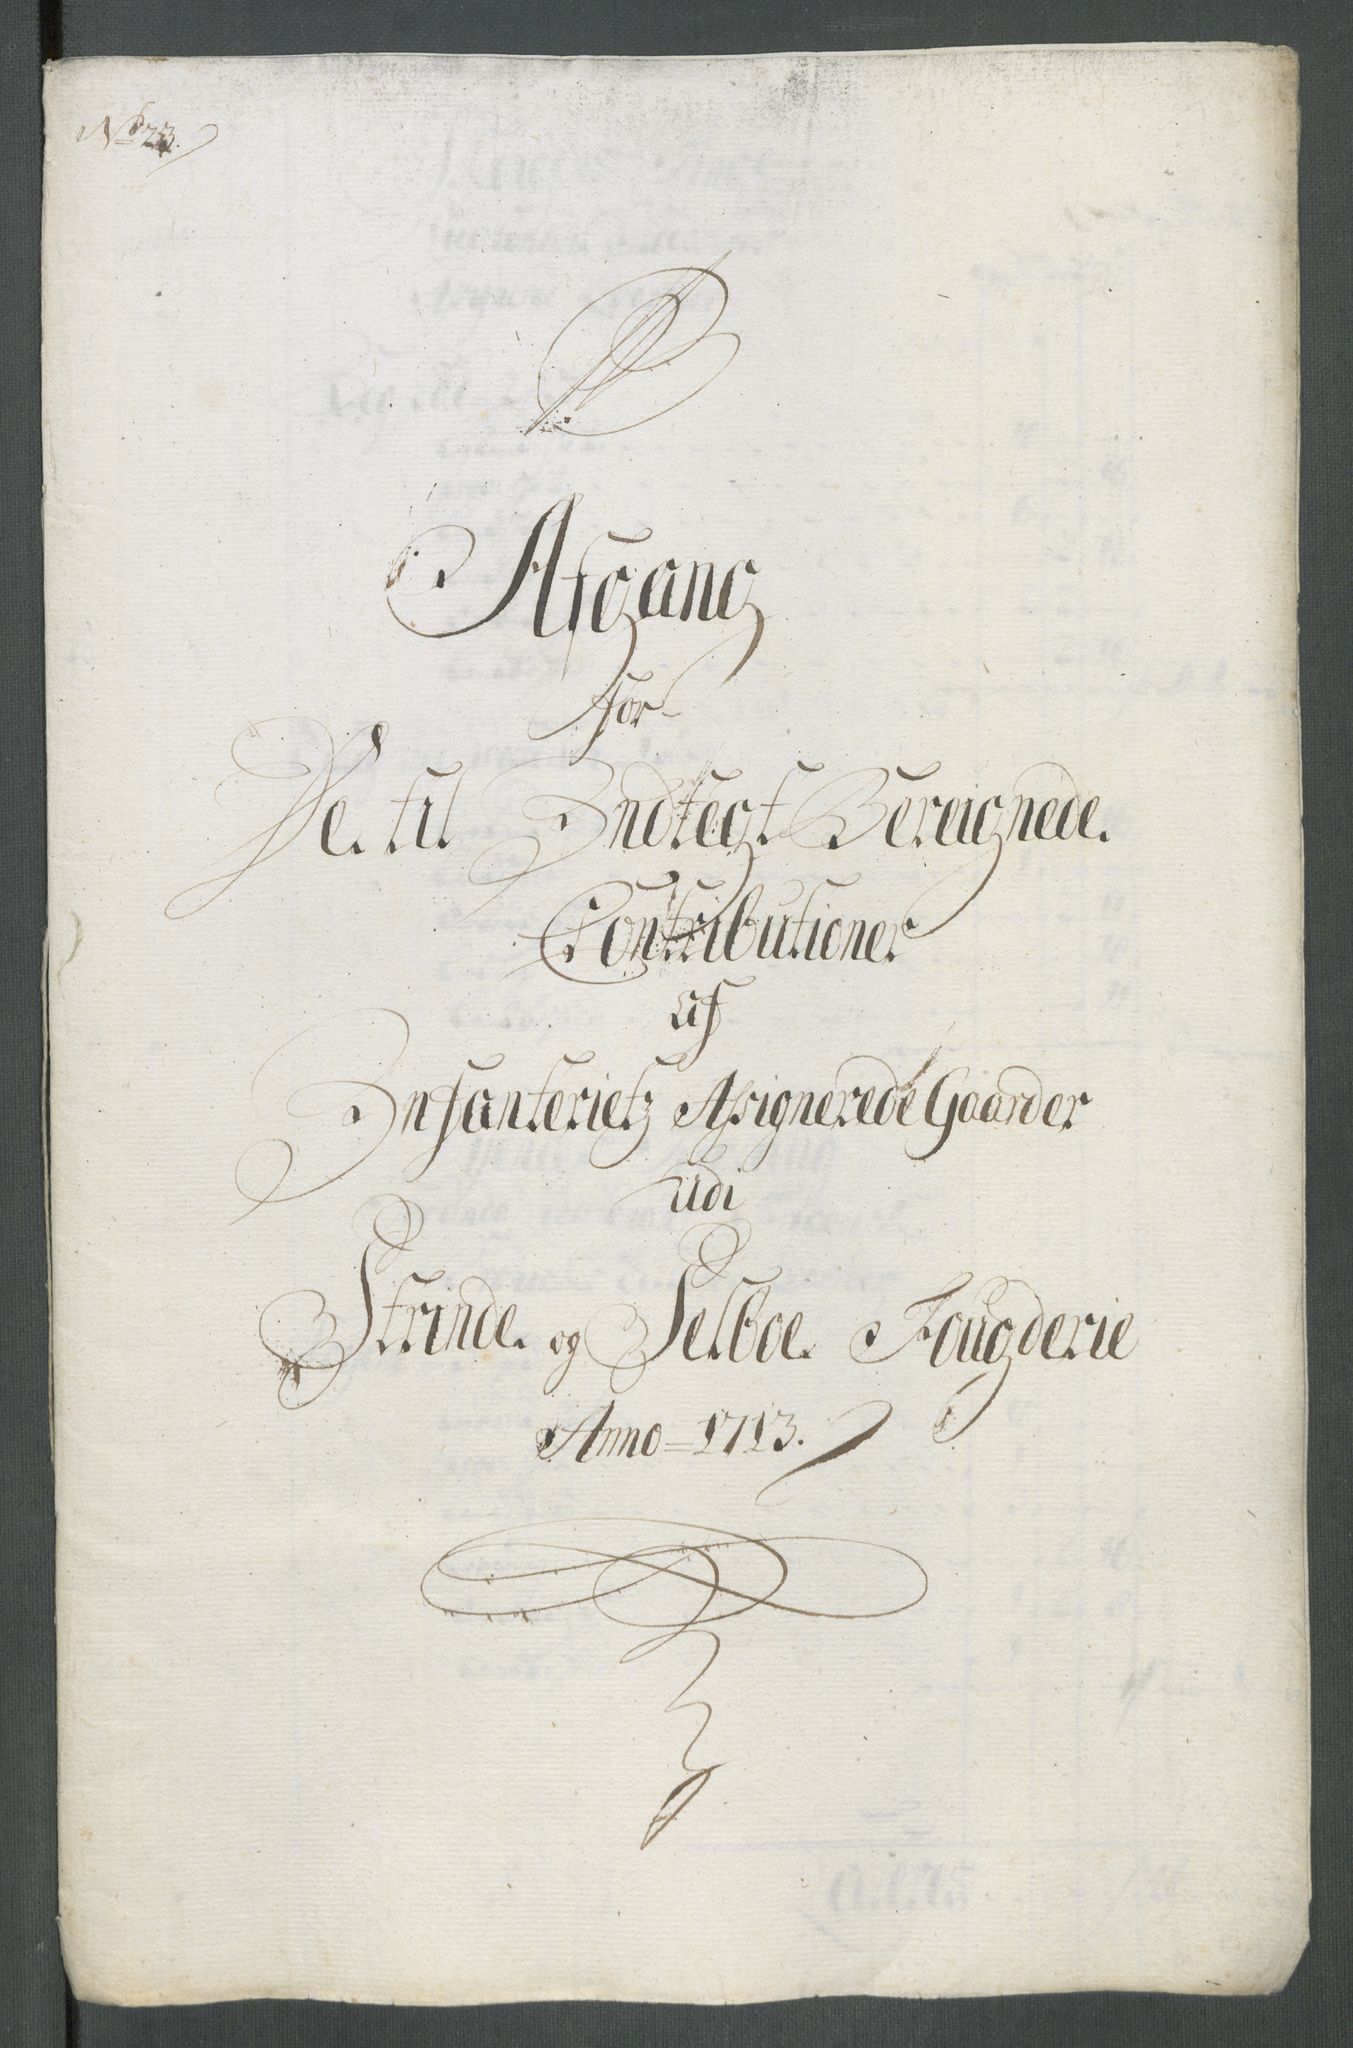 No 23.
Afgang
for
De til Indtegt Bereignede
Contributioner
af
Infanterietz Assignerede Gaarder
udi
Strinde og Selboe Fougderie
Anno 1713.